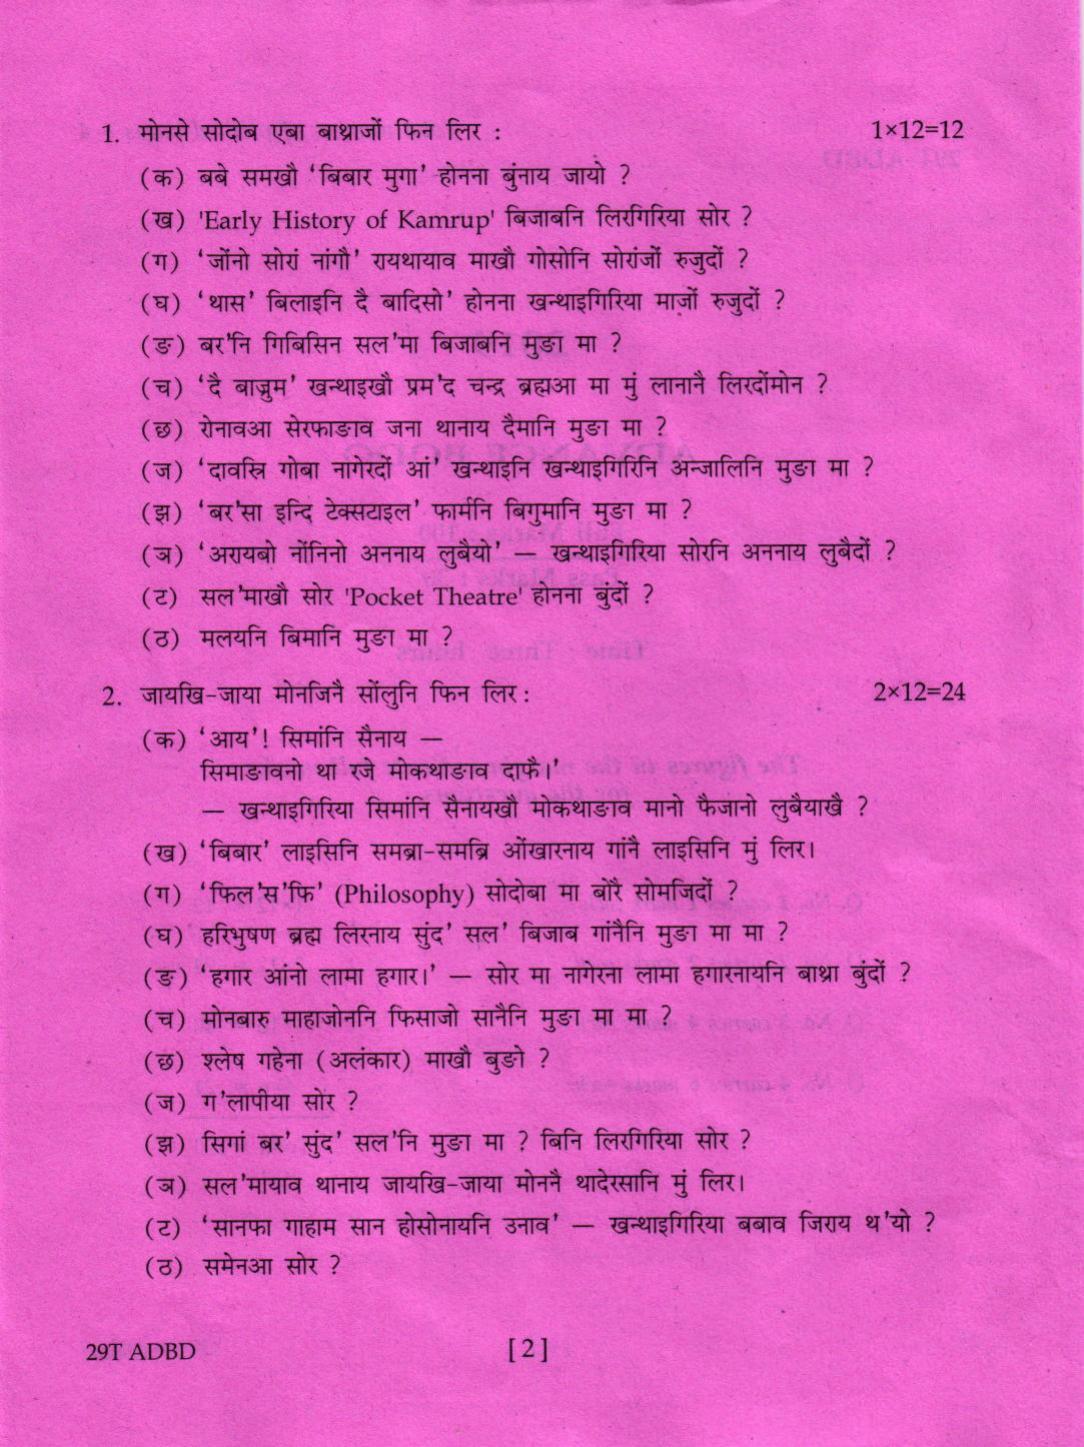 1. मोनसे सोदोब एबा बाथ्राजों फिन लिर : 1×12=12
(क) बबे समखौ ‘बिबार मुगा’ होनना बुंनाय जायो ?
(ख) 'Early History of Kamrup' बिजाबनि लिरगिरिया सोर ?
(ग) ‘जोंनो सोरां नांगौ’ रायथायाव माखौ गोसोनि सोरांजों रुजुदों ?
(घ) ‘थास’ बिलाइनि दै बादिसो’ होनना खन्थाइगिरिया माजों रुजुदों ?
(ङ) बर’नि गिबिसिन सल’मा बिजाबनि मुङा मा ?
(च) ‘दै बाज्रुम’ खन्थाइखौ प्रम’द चन्द्र ब्रह्मआ मा मुं लानानै लिरदोंमोन ?
(छ) रोनावआ सेरफाङाव जना थानाय दैमानि मुङा मा ?
(ज) ‘दावस्रि गोबा नागेरदों आं’ खन्थाइनि खन्थाइगिरिनि अन्जालिनि मुङा मा ?
(झ) ‘बर’सा इन्दि टेक्सटाइल’ फार्मनि बिगुमानि मुङा मा ?
(ञ) ‘अरायबो नोंनिनो अननाय लुबैयो’ — खन्थाइगिरिया सोरनि अननाय लुबैदों ?
(ट) सल’माखौ सोर 'Pocket Theatre' होनना बुंदों ?
(ठ) मलयनि बिमानि मुङा मा ?
2. जायखि-जाया मोनजिनै सोंलुनि फिन लिर : 2×12=24
(क) ‘आय’! सिमांनि सैनाय —
सिमाङावनो था रजे मोकथाङाव दाफै।’
— खन्थाइगिरिया सिमांनि सैनायखौ मोकथाङाव मानो फैजानो लुबैयाखै ?
(ख) ‘बिबार’ लाइसिनि समब्रा-समब्रि ओंखारनाय गांनै लाइसिनि मुं लिर।
(ग) ‘फिल’स’फि’ (Philosophy) सोदोबा मा बोरै सोमजिदों ?
(घ) हरिभुषण ब्रह्म लिरनाय सुंद’ सल’ बिजाब गांनैनि मुङा मा मा ?
(ङ) ‘हगार आंनो लामा हगार।’ — सोर मा नागेरना लामा हगारनायनि बाथ्रा बुंदों ?
(च) मोनबारु माहाजोननि फिसाजो सानैनि मुङा मा मा ?
(छ) श्लेष गहेना (अलंकार) माखौ बुङो ?
(ज) ग’लापीया सोर ?
(झ) सिगां बर’ सुंद’ सल’नि मुङा मा ? बिनि लिरगिरिया सोर ?
(ञ) सल’मायाव थानाय जायखि-जाया मोननै थादेरसानि मुं लिर।
(ट) ‘सानफा गाहाम सान होसोनायनि उनाव’ — खन्थाइगिरिया बबाव जिराय थ’यो ?
(ठ) समेनआ सोर ?
29T ADBD [ 2 ]